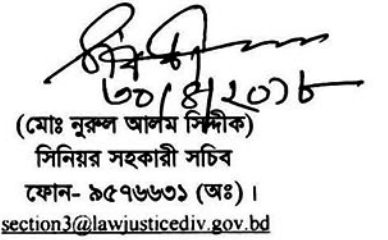 ৩০/৪/২০১৮
(মোঃ নুরুল আলম সিদ্দীক)
সিনিয়র সহকারী সচিব
ফোন- ৯৫৭৬৬৩১ (অঃ) ।
section3@lawjusticediv.gov.bd